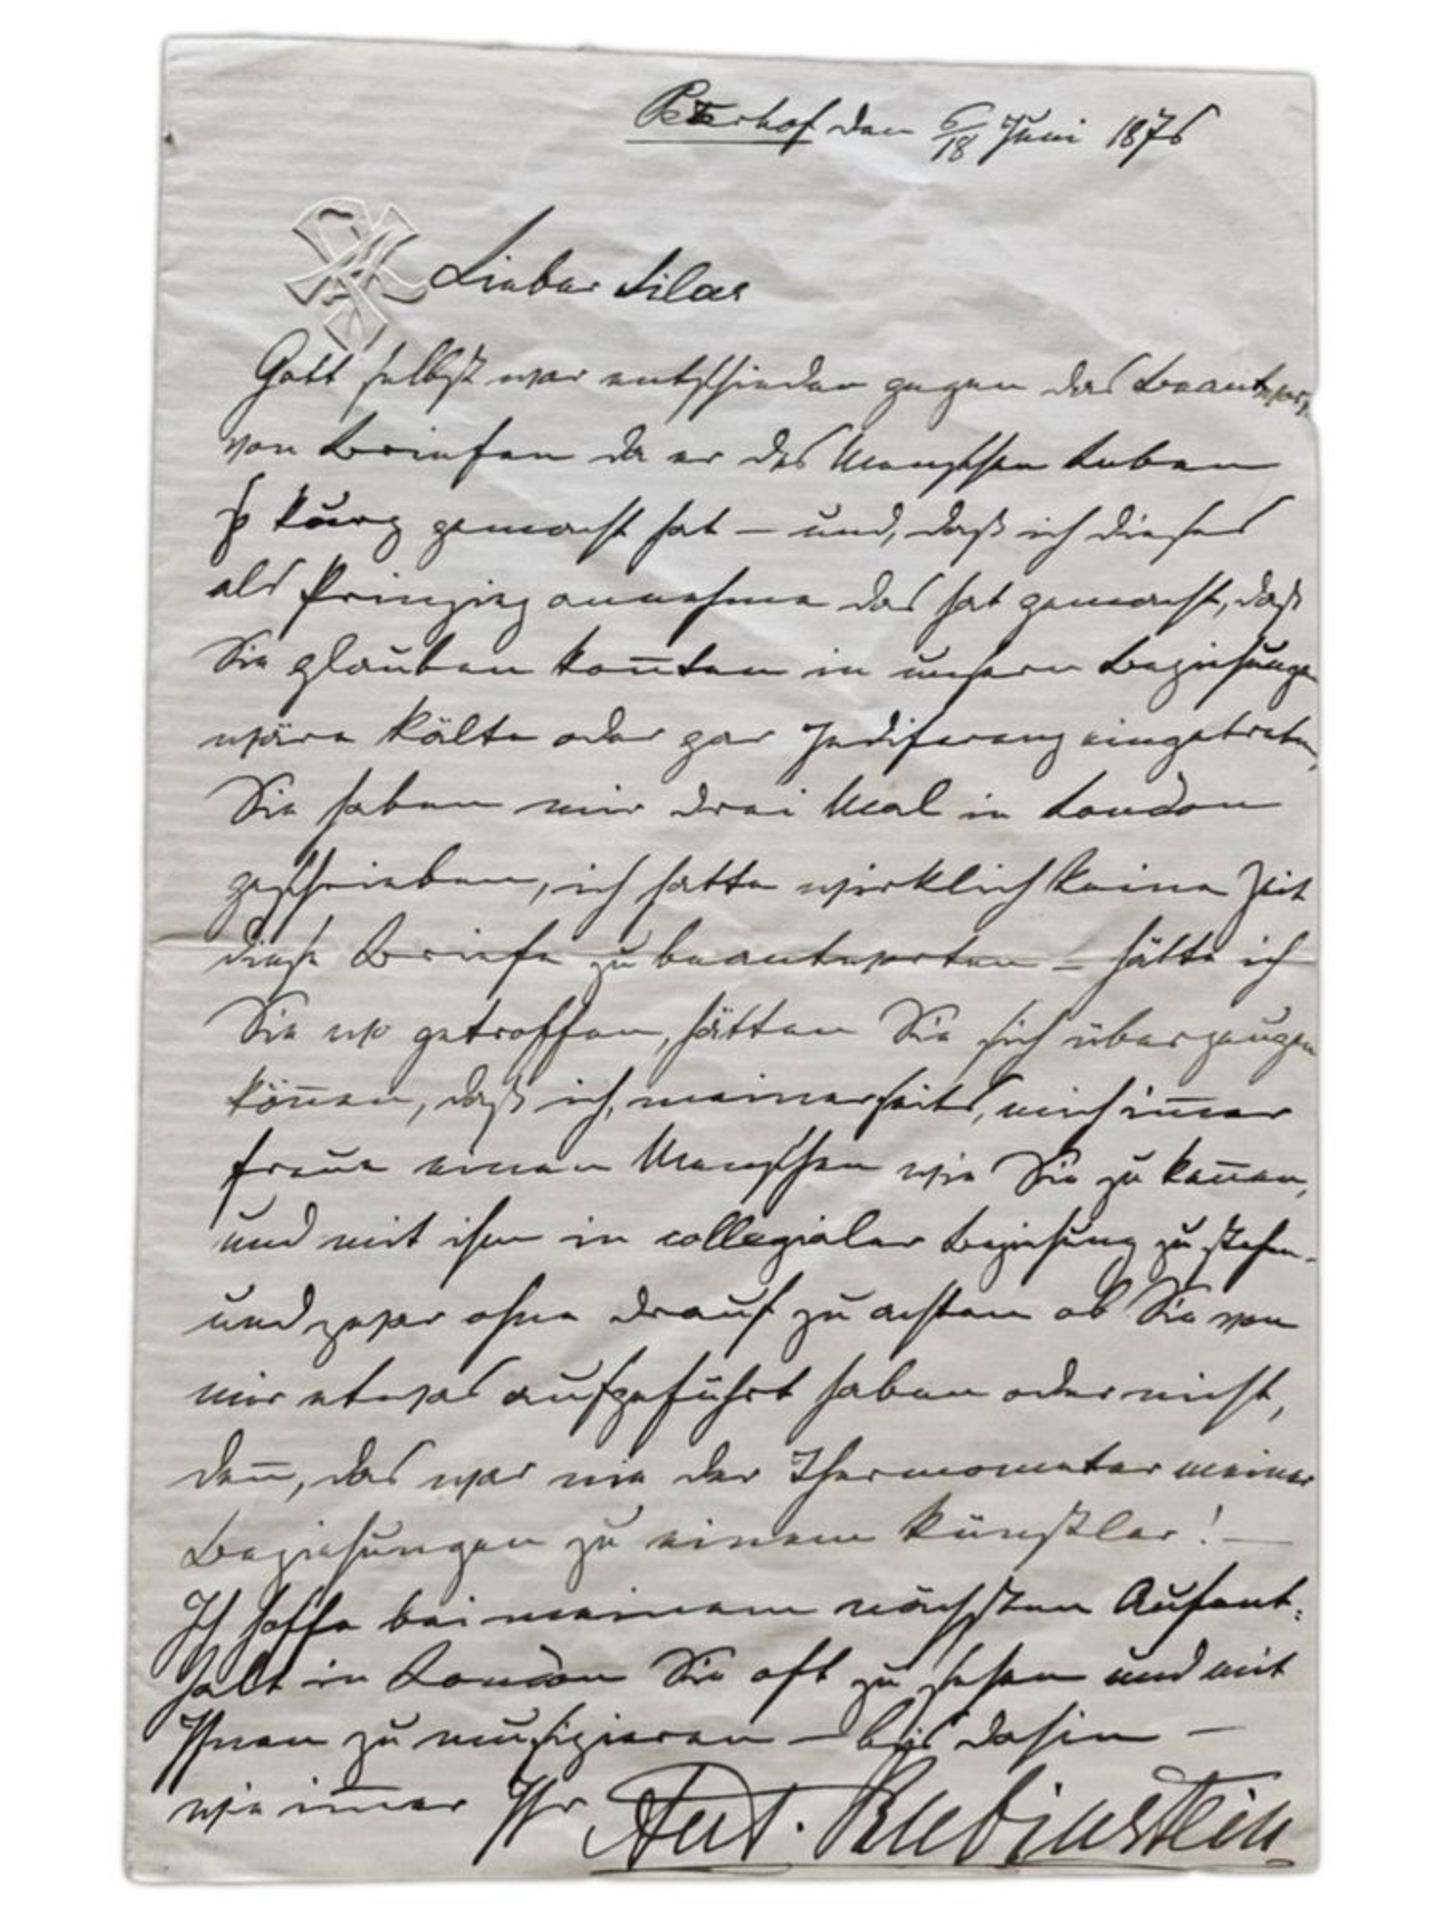 Peterhof den 6/18 Juni 1876
Lieber Silas
Gott selbst war entschieden gegen das Beantwort
von Briefen da er des Menschen Leben
so kurz gemacht hat – und, daß ich dieses
als Prinzip annehme das hat gemacht, daß
Sie glauben kon̅ten in unsern Beziehungen
wäre Kälte oder gar Indiferenz eingetreten,
Sie haben mir drei Mal in London
geschrieben, ich hatte wirklich keine Zeit
diese Briefe zu beantworten – hätte ich
Sie wo getroffen, hätten Sie sich überzeugen
kön̅en, daß ich, meinerseits, mich im̅er
freue einen Menschen wie Sie zu ken̅en,
und mit ihm in collegialer Beziehung zu stehen –
und zwar ohne drauf zu achten ob Sie von
mir etwas aufgeführt haben oder nicht,
den̅, das war nie der Thermometer meiner
Beziehungen zu einem Künstler! –
Ich hoffe bei meinem nächsten Aufent:
halt in London Sie oft zu sehen und mit
Ihnen zu musizieren – bis dahin –
wie im̅er Ihr Ant. Rubinstein